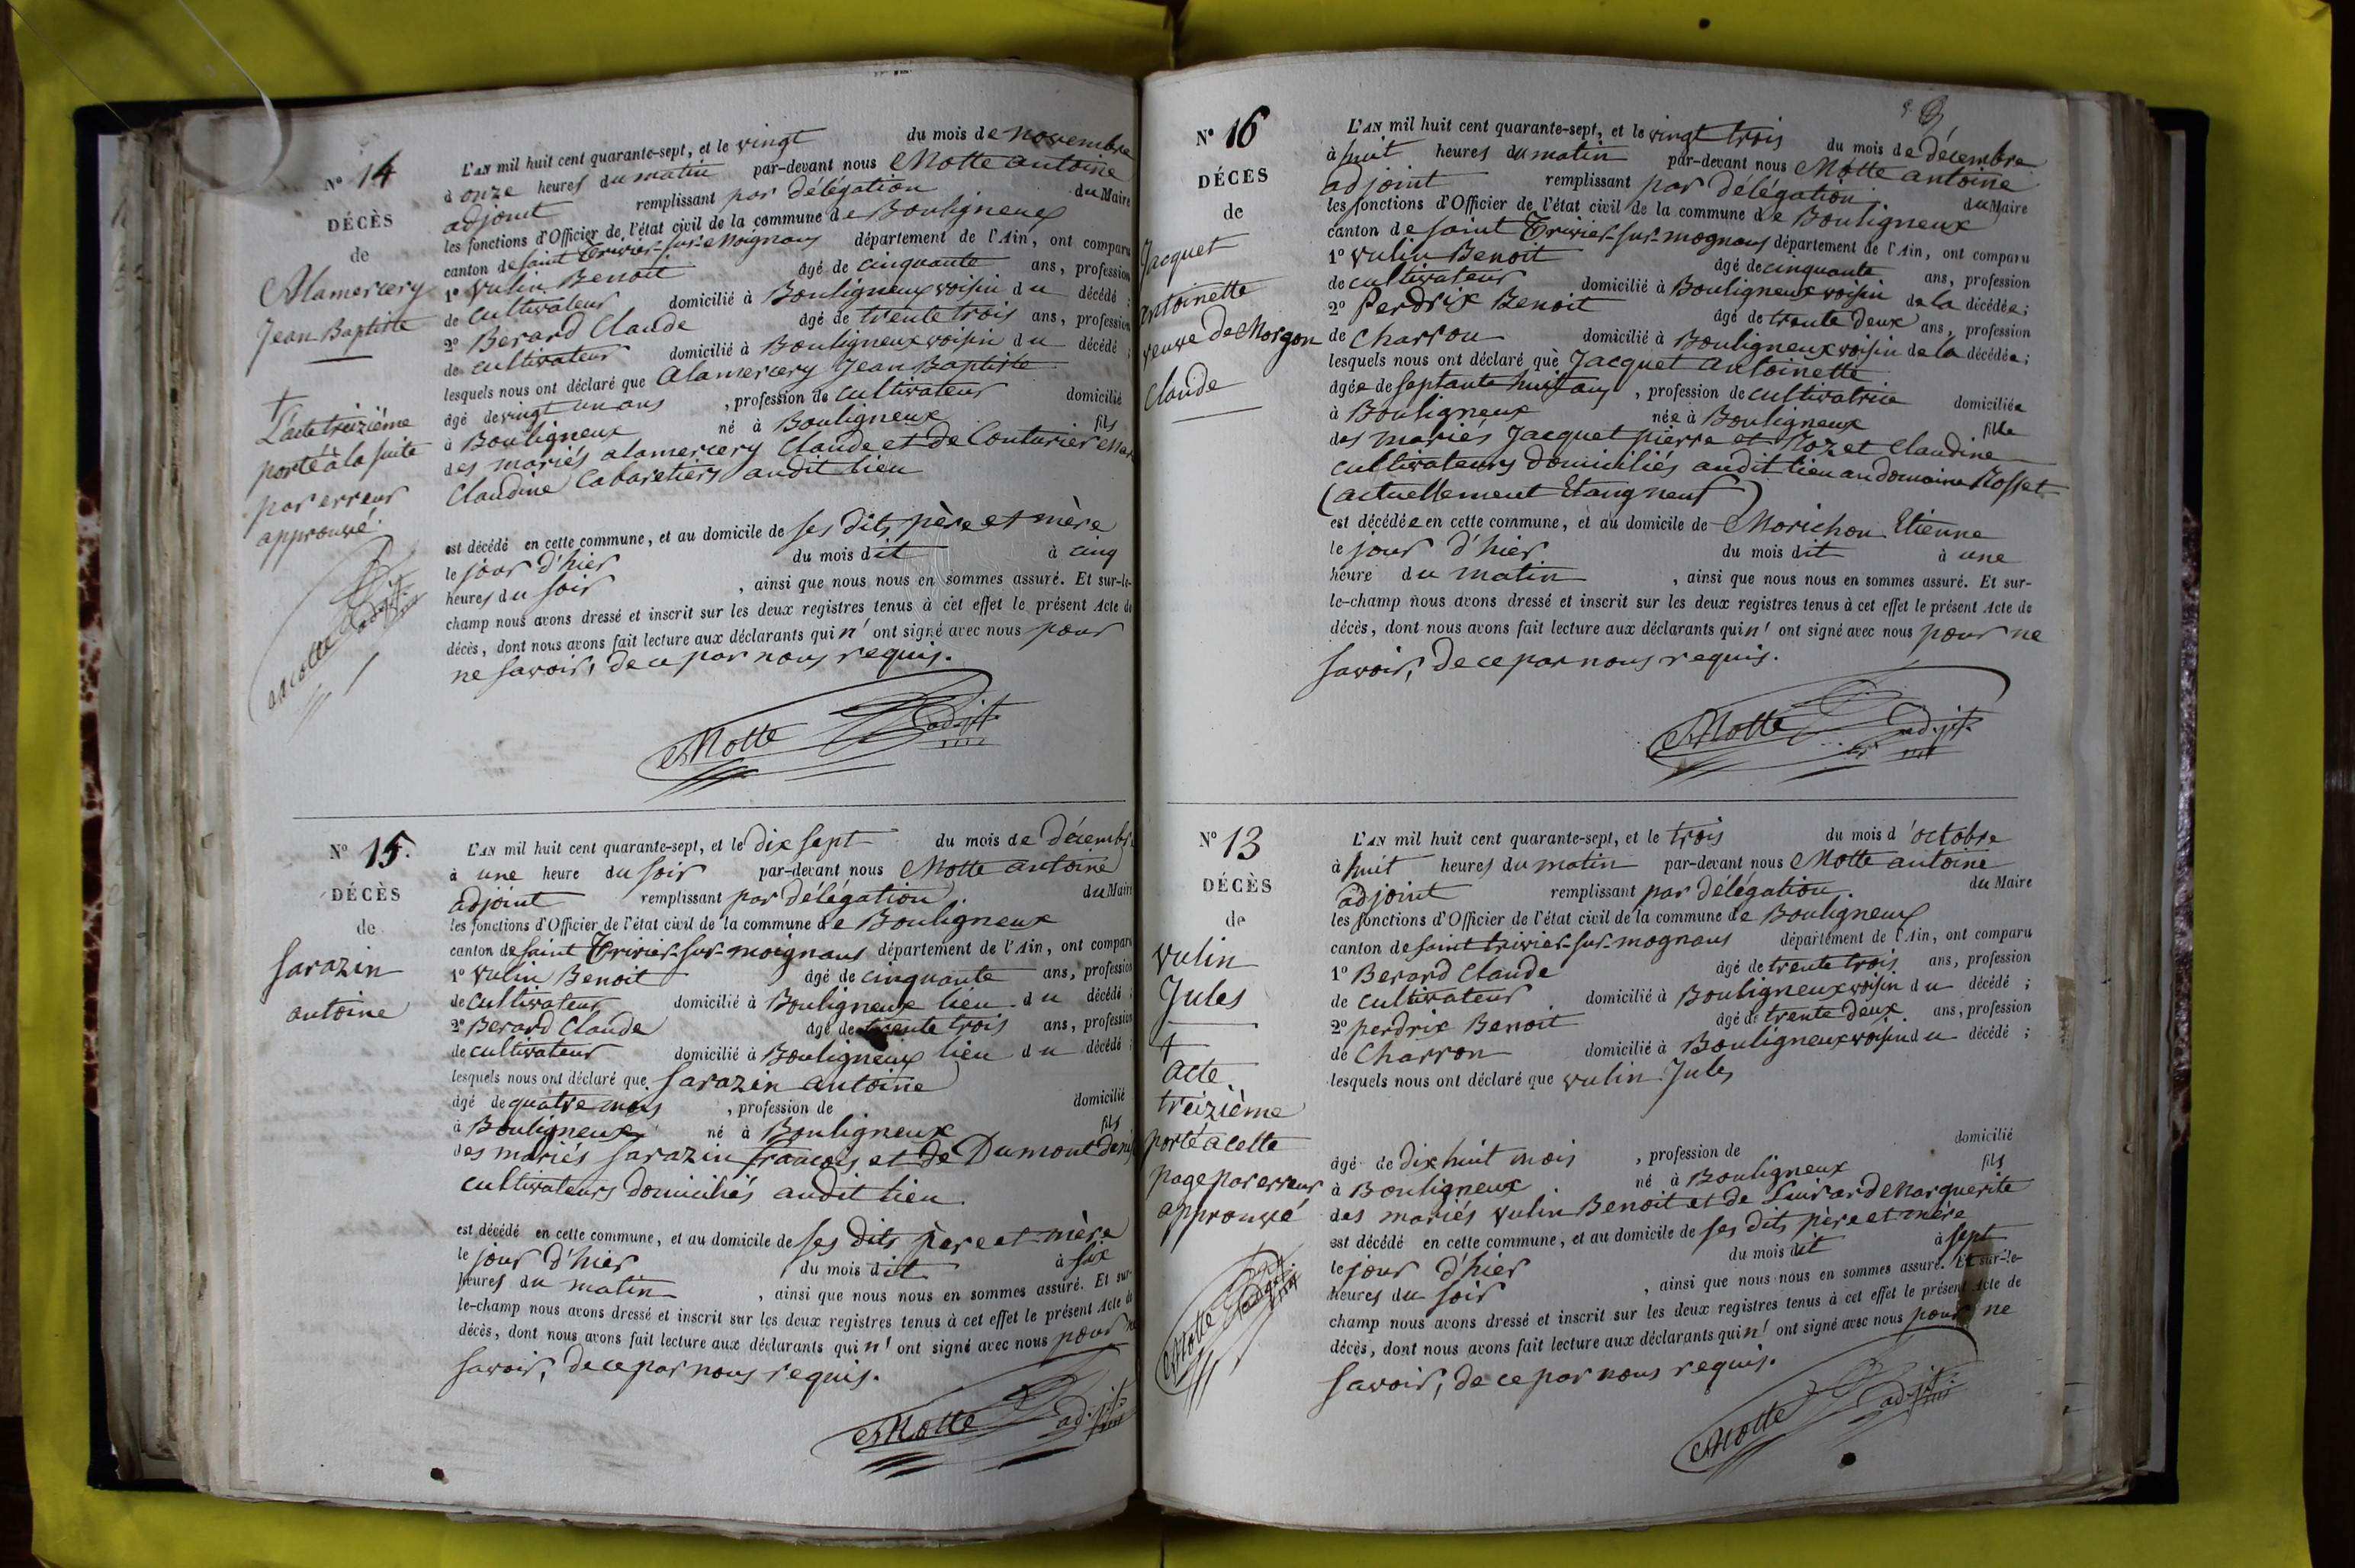 N° 14
DÉCÈS
de
Alamercery
Jean Baptiste
L'acte treizième
porté à la suite
par erreur
approuvé.
Motte adjt.
L'AN mil huit cent quarante-sept, et le vingt du mois de novembre
à onze heures du matin par-devant nous Motte antoine
adjoint remplissant par délégation du Maire
les fonctions d'Officier de l'état civil de la commune de Bouligneux
canton de saint Trivier-sur-Moignans département de l'Ain, ont comparu
1° Vulin Benoit âgé de cinquante ans, profession
de cultivateur domicilié à Bouligneux voisin du décédé ;
2° Berard Claude âgé de trente trois ans, profession
de cultivateur domicilié à Bouligneux voisin du décédé ;
lesquels nous ont déclaré que Alamercery Jean Baptiste
âgé de vingt un ans , profession de cultivateur domicilié
à Bouligneux né à Bouligneux fils
des mariés alamercery Claude et de Couturier
Claudine Cabaretiers audit lieu
est décédé en cette commune, et au domicile de ses dits père et mère
le jour d'hier du mois dit à cinq
heures du soir , ainsi que nous nous en sommes assuré. Et sur-le-
champ nous avons dressé et inscrit sur les deux registres tenus à cet effet le présent Acte de
décès, dont nous avons fait lecture aux déclarants qui n' ont signé avec nous pour
ne savoir, de ce par nous requis.
Motte adjt.
N° 15.
DÉCÈS
de
Sarazin
antoine
L'AN mil huit cent quarante-sept, et le dix sept du mois de décembre
à une heure du soir par-devant nous Motte antoine
adjoint remplissant par délégation du Maire
les fonctions d'Officier de l'état civil de la commune de Bouligneux
canton de saint Trivier-sur-moignans département de l'Ain, ont comparu
1° Vulin Benoit âgé de cinquante ans, profession
de cultivateur domicilié à Bouligneux lieu du décédé ;
2° Berard Claude âgé de trente trois ans, profession
de cultivateur domicilié à Bouligneux lieu du décédé ;
lesquels nous ont déclaré que Sarazin antoine
âgé de quatre mois , profession de domicilié
à Bouligneux né à Bouligneux fils
des mariés Sarazin françois et de Dumont
cultivateurs domiciliés audit lieu
est décédé en cette commune, et au domicile de ses dits père et mère
le jour d'hier du mois dit à six
heures du matin , ainsi que nous nous en sommes assuré. Et sur-
le-champ nous avons dressé et inscrit sur les deux registres tenus à cet effet le présent Acte de
décès, dont nous avons fait lecture aux déclarants qui n' ont signé avec nous pour ne
savoir, de ce par nous requis.
Motte adjt.
N° 16
DÉCÈS
de
Jacquet
antoinette
veuve de Morgon
Claude
L'AN mil huit cent quarante-sept, et le vingt trois du mois de décembre
à huit heures du matin par-devant nous Motte antoine
adjoint remplissant par délégation. du Maire
les fonctions d'Officier de l'état civil de la commune de Bouligneux
canton de saint Trivier-sur-mognans département de l'Ain, ont comparu
1° Vulin Benoit âgé de cinquante ans, profession
de cultivateur domicilié à Bouligneux voisin de la décédée ;
2° Perdrix Benoit âgé de trente deux ans, profession
de Charron domicilié à Bouligneux voisin de la décédée ;
lesquels nous ont déclaré que Jacquet antoinette
âgée de septante huit ans , profession de cultivatrice domiciliée
à Bouligneux née à Bouligneux fille
des mariés Jacquet pierre et Rozet Claudine
cultivateurs domiciliés audit lieu au domaine Rosset
(actuellement Etang neuf)
est décédée en cette commune, et au domicile de Morichon Etienne
le jour d'hier du mois dit à une
heure du matin , ainsi que nous nous en sommes assuré. Et sur-
le-champ nous avons dressé et inscrit sur les deux registres tenus à cet effet le présent Acte de
décès, dont nous avons fait lecture aux déclarants qui n' ont signé avec nous pour ne
savoir, de ce par nous requis.
Motte adjt.
N° 13
DÉCÈS
de
vulin
Jules
acte
treizième
porté à cette
page par erreur
approuvé
Motte adjt.
L'AN mil huit cent quarante-sept, et le trois du mois d'octobre
à huit heures du matin par-devant nous Motte antoine
adjoint remplissant par délégation. du Maire
les fonctions d'Officier de l'état civil de la commune de Bouligneux
canton de saint trivier-sur-mognans département de l'Ain, ont comparu
1° Berard Claude âgé de trente trois ans, profession
de cultivateur domicilié à Bouligneux voisin du décédé ;
2° perdrix Benoit âgé de trente deux ans, profession
de Charron domicilié à Bouligneux voisin du décédé ;
lesquels nous ont déclaré que vulin Jules
âgé de dix huit mois , profession de domicilié
à Bouligneux né à Bouligneux fils
des mariés vulin Benoit et de Marguerite
est décédé en cette commune, et au domicile de ses dits père et mère
le jour d'hier du mois dit à sept
heures du soir , ainsi que nous nous en sommes assuré. Et sur-le-
champ nous avons dressé et inscrit sur les deux registres tenus à cet effet le présent Acte de
décès, dont nous avons fait lecture aux déclarants qui n' ont signé avec nous pour ne
savoir, de ce par nous requis.
Motte adjt.